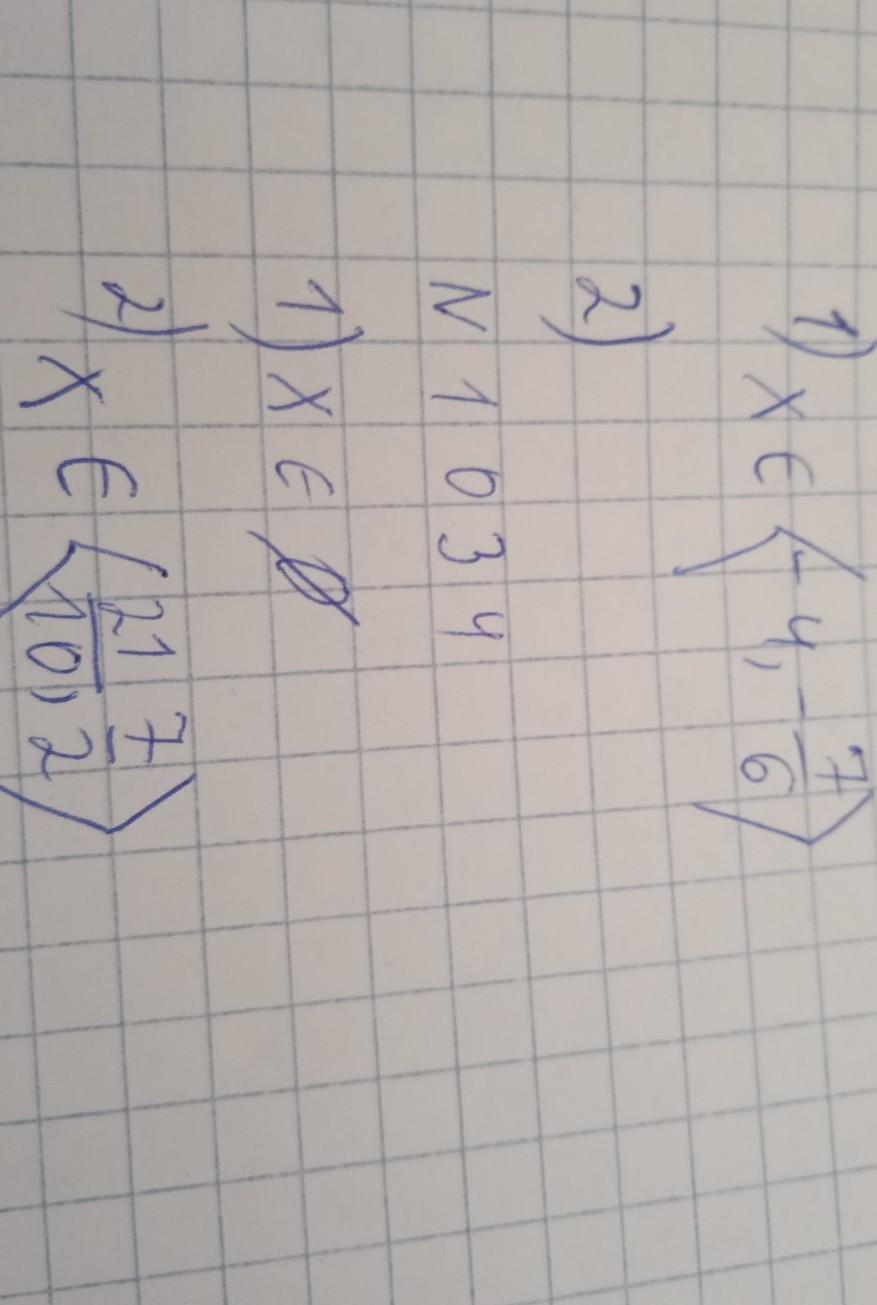 1) x ∈ ⟨-4, -7/6⟩
2)
N 1034
1) x ∈ ∅
2) x ∈ ⟨21/10, 7/2⟩